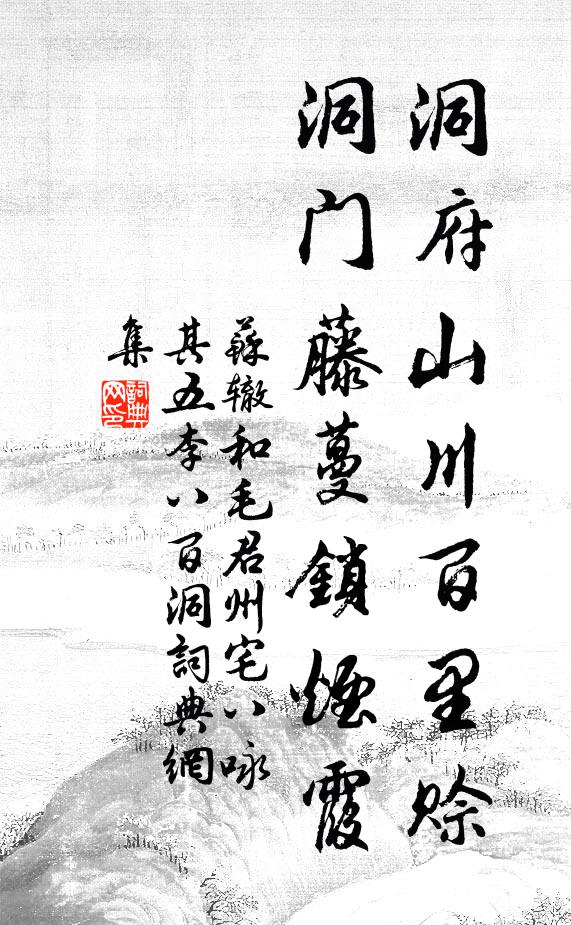 洞府山川百里賒
洞門藤蔓鎖煙霞
蘇轍和毛君州宅八咏
其五李八百洞詞典網
集
詞典网印